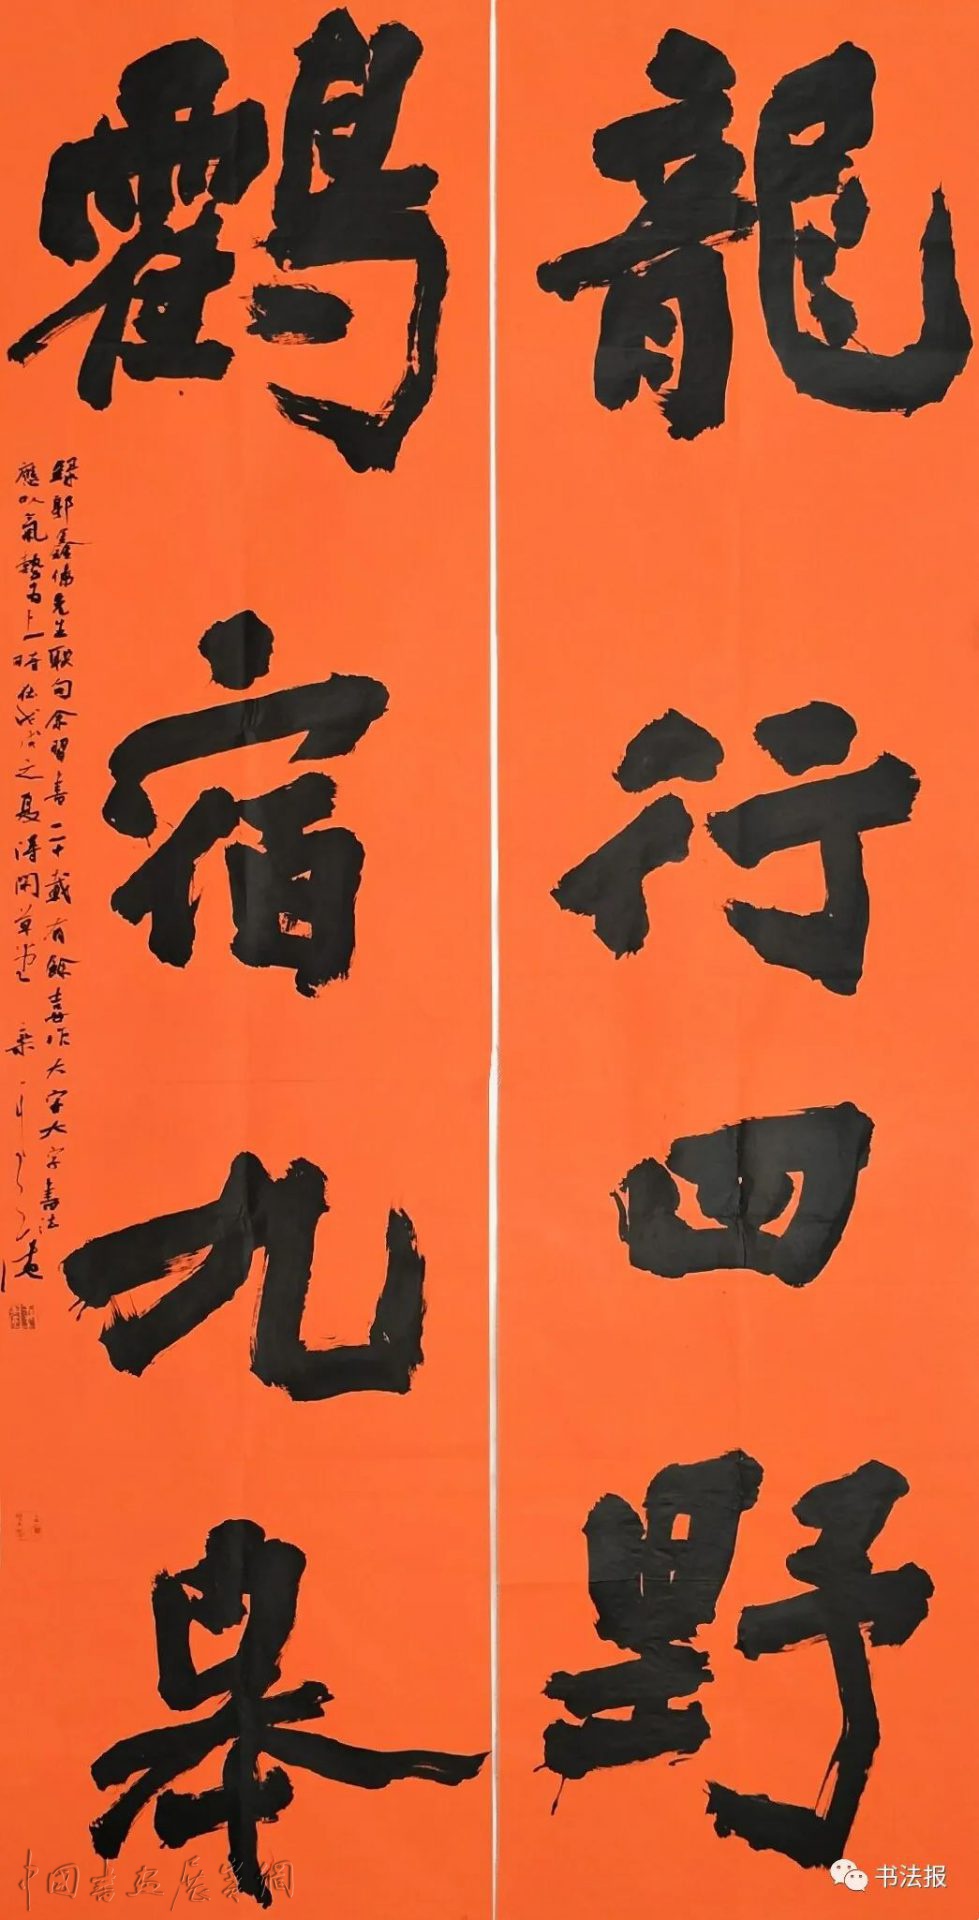 龍行四野
鶴宿九皋
録郭鑫偉先生聯句余習書二十載有餘喜作大字大字書法
應以氣勢為上時在戊戌之夏得閑草堂
中國書画展賽網
书法报